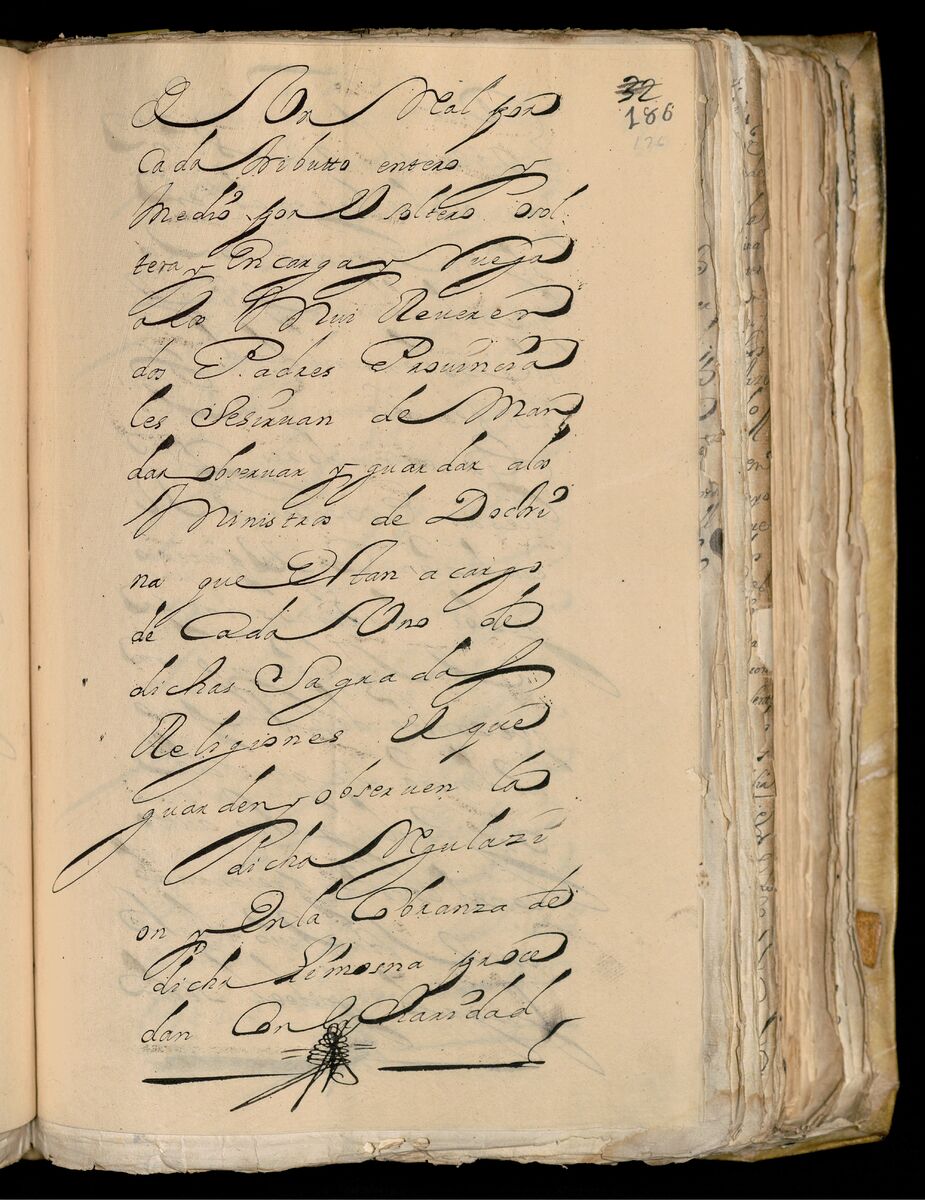 32
186
126
De Un Real por
Cada tributto entero y
Medio por El soltero o sol
tera y Encarga y Ruega
a los Mui Reueren
dos Padres Prouincia
les Sesiruan de Man
dar obseruar y guardar alos
Ministros de Doctri
na que Estan a cargo
de Cada Uno de
dichas Sagradas
Religiones El que
guarden y obseruen la
dicha Regulazi
on y En la Cobranza de
dicha Limosna proce
dan Con la Charidad